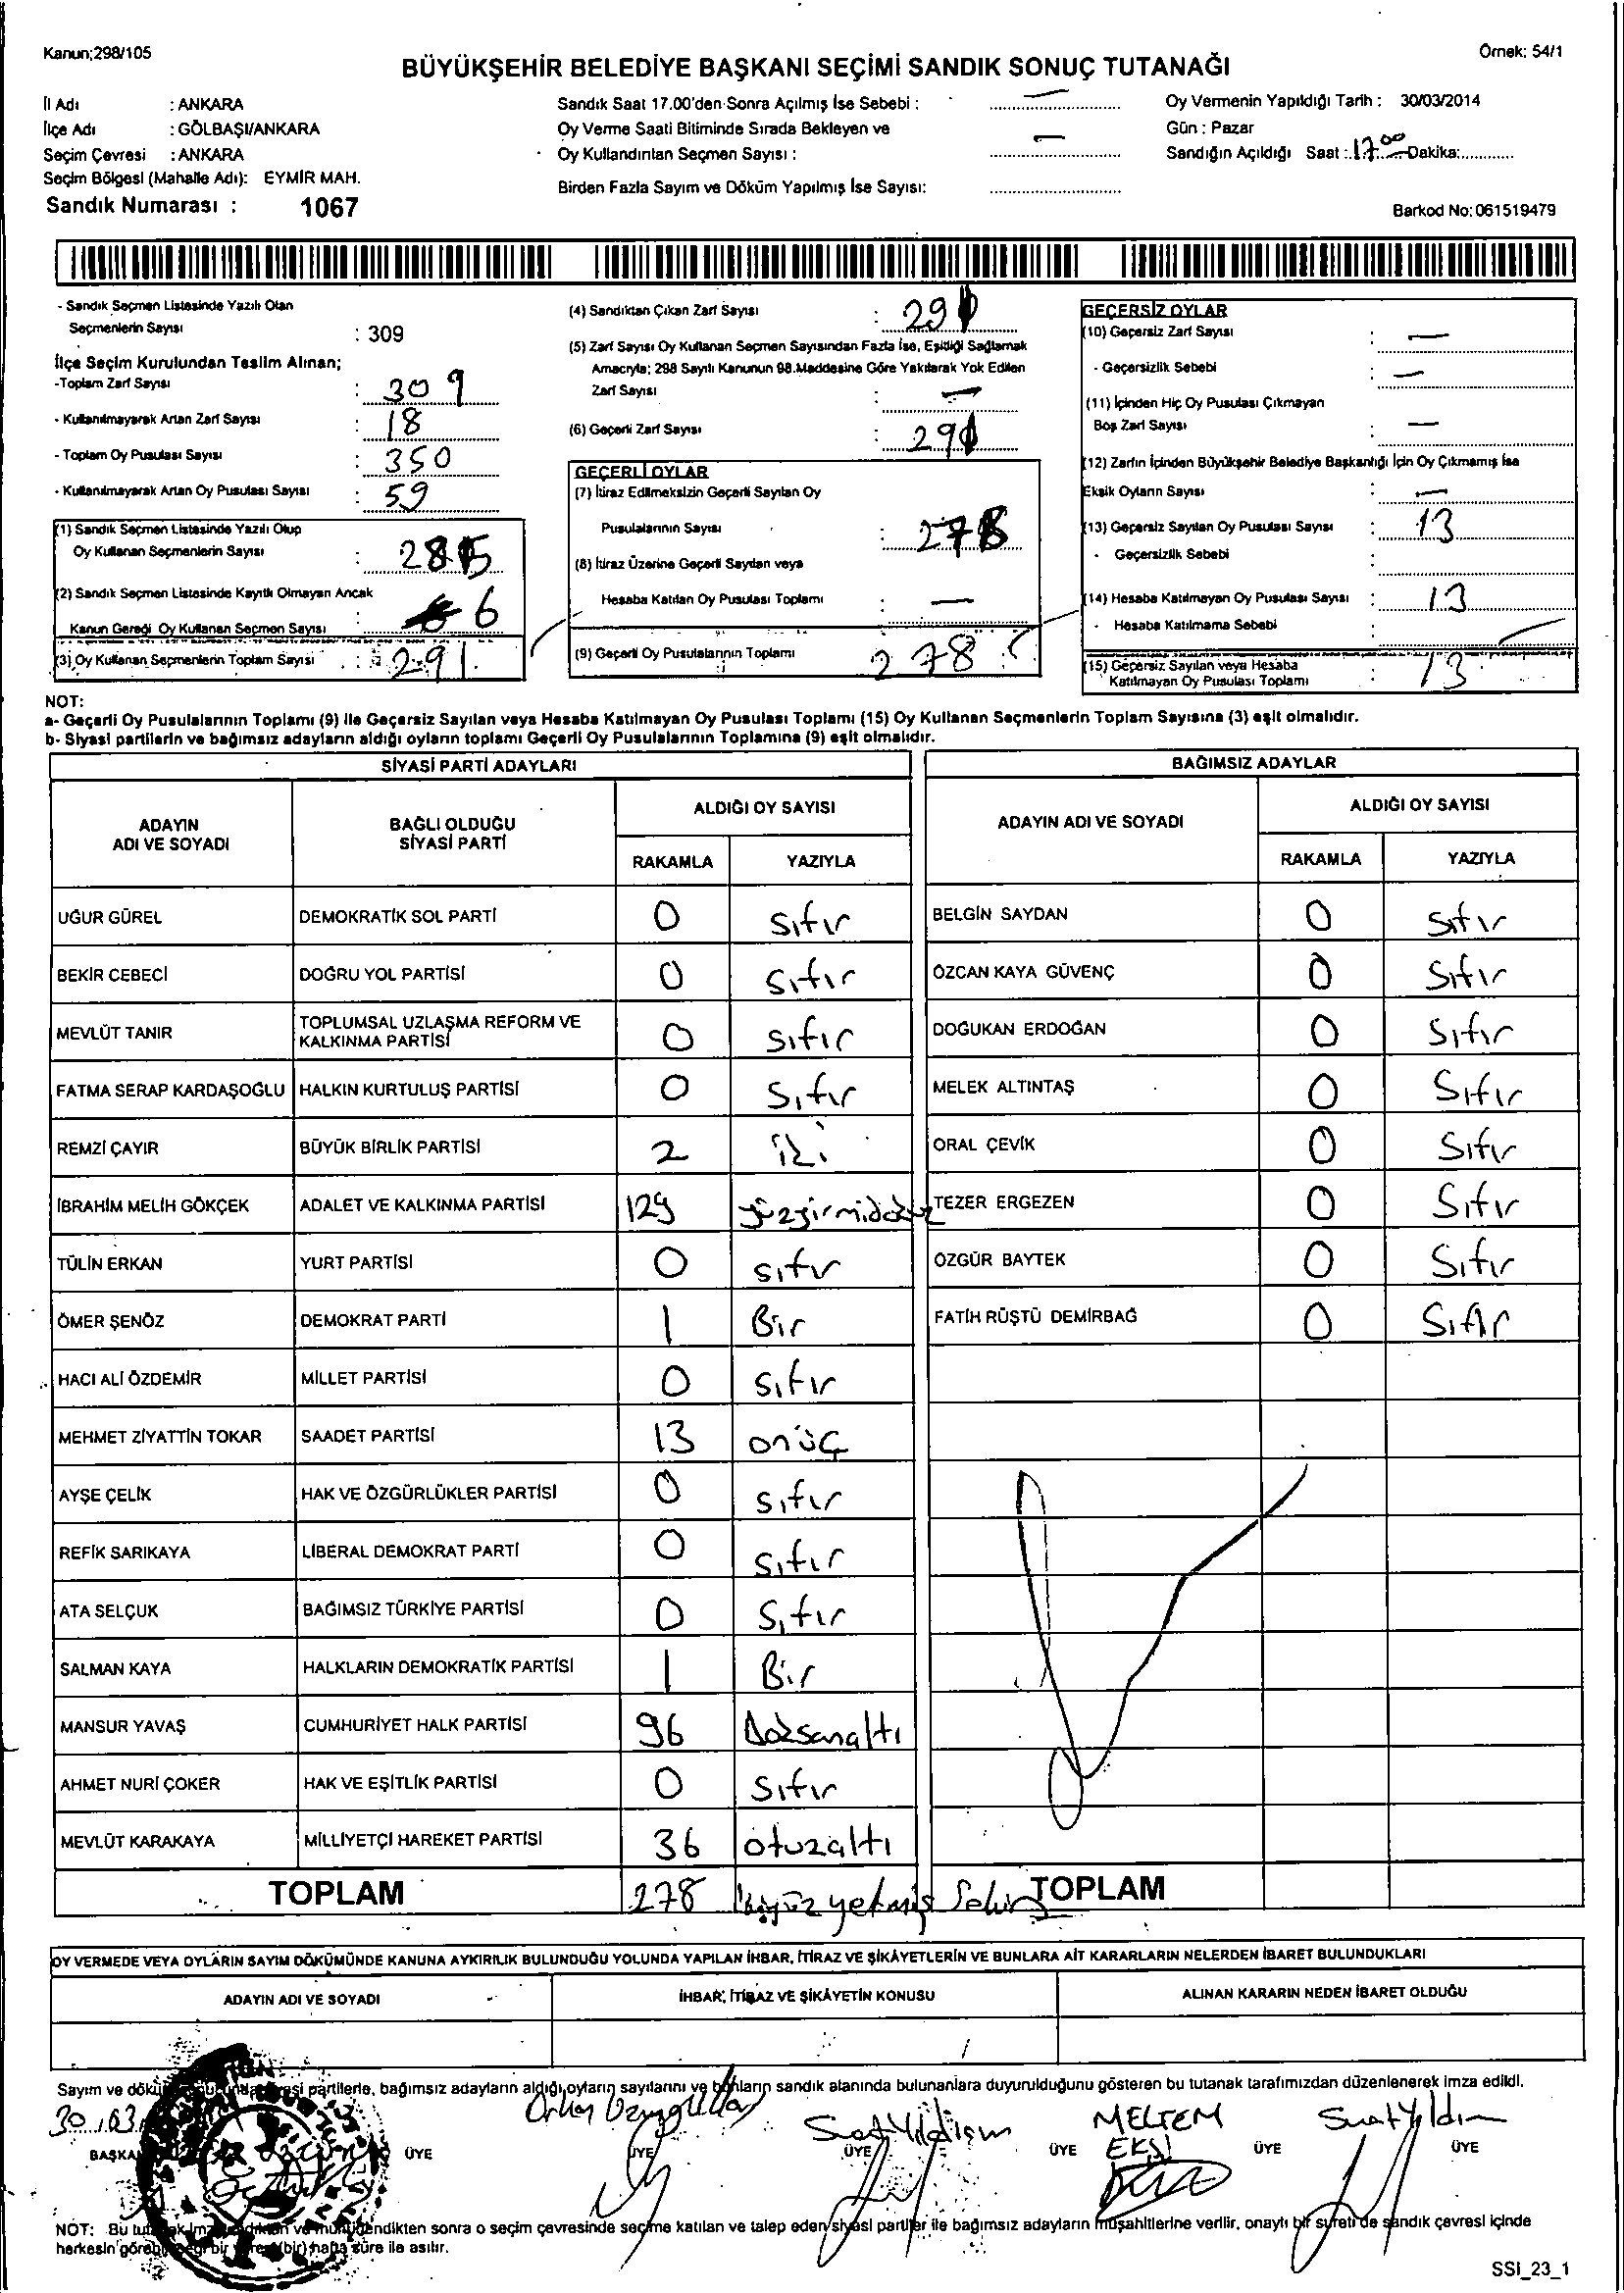 Kanun;298/105
Örnek: 54/1
BÜYÜKŞEHİR BELEDİYE BAŞKANI SEÇİMİ SANDIK SONUÇ TUTANAĞI
İl Adı : ANKARA
İlçe Adı : GÖLBAŞI/ANKARA
Seçim Çevresi : ANKARA
Seçim Bölgesi (Mahalle Adı): EYMİR MAH.
Sandık Numarası : 1067
Sandık Saat 17.00'den Sonra Açılmış İse Sebebi : —
Oy Verme Saati Bitiminde Sırada Bekleyen ve
Oy Kullandırılan Seçmen Sayısı : —
Birden Fazla Sayım ve Döküm Yapılmış İse Sayısı:
Oy Vermenin Yapıldığı Tarih : 30/03/2014
Gün : Pazar
Sandığın Açıldığı Saat : 17.00 Dakika:
Barkod No: 061519479
- Sandık Seçmen Listesinde Yazılı Olan
Seçmenlerin Sayısı : 309
İlçe Seçim Kurulundan Teslim Alınan;
-Toplam Zarf Sayısı : 309
- Kullanılmayarak Artan Zarf Sayısı : 18
- Toplam Oy Pusulası Sayısı : 350
- Kullanılmayarak Artan Oy Pusulası Sayısı : 59
(1) Sandık Seçmen Listesinde Yazılı Olup
Oy Kullanan Seçmenlerin Sayısı : 285
(2) Sandık Seçmen Listesinde Kayıtlı Olmayan Ancak
Kanun Gereği Oy Kullanan Seçmen Sayısı : 6
(3) Oy Kullanan Seçmenlerin Toplam Sayısı : 291
(4) Sandıktan Çıkan Zarf Sayısı : 291
(5) Zarf Sayısı Oy Kullanan Seçmen Sayısından Fazla İse, Eşitliği Sağlamak
Amacıyla; 298 Sayılı Kanunun 98.Maddesine Göre Yakılarak Yok Edilen
Zarf Sayısı : —
(6) Geçerli Zarf Sayısı : 291
GEÇERLİ OYLAR
(7) İtiraz Edilmeksizin Geçerli Sayılan Oy
Pusulalarının Sayısı : 278
(8) İtiraz Üzerine Geçerli Sayılan veya
Hesaba Katılan Oy Pusulası Toplamı : —
(9) Geçerli Oy Pusulalarının Toplamı 278
GEÇERSİZ OYLAR
(10) Geçersiz Zarf Sayısı : —
- Geçersizlik Sebebi : —
(11) İçinden Hiç Oy Pusulası Çıkmayan
Boş Zarf Sayısı : —
(12) Zarfın İçinden Büyükşehir Belediye Başkanlığı İçin Oy Çıkmamış İse
Eksik Oyların Sayısı : —
(13) Geçersiz Sayılan Oy Pusulası Sayısı : 13
- Geçersizlik Sebebi :
(14) Hesaba Katılmayan Oy Pusulası Sayısı : 13
- Hesaba Katılmama Sebebi :
(15) Geçersiz Sayılan veya Hesaba
Katılmayan Oy Pusulası Toplamı : 13
NOT:
a- Geçerli Oy Pusulalarının Toplamı (9) ile Geçersiz Sayılan veya Hesaba Katılmayan Oy Pusulası Toplamı (15) Oy Kullanan Seçmenlerin Toplam Sayısına (3) eşit olmalıdır.
b- Siyasi partilerin ve bağımsız adayların aldığı oyların toplamı Geçerli Oy Pusulalarının Toplamına (9) eşit olmalıdır.
SİYASİ PARTİ ADAYLARI
ADAYIN ADI VE SOYADI
BAĞLI OLDUĞU SİYASİ PARTİ
ALDIĞI OY SAYISI
RAKAMLA YAZIYLA
UĞUR GÜREL DEMOKRATİK SOL PARTİ 0 sıfır
BEKİR CEBECİ DOĞRU YOL PARTİSİ 0 sıfır
MEVLÜT TANIR TOPLUMSAL UZLAŞMA REFORM VE KALKINMA PARTİSİ 0 sıfır
FATMA SERAP KARDAŞOĞLU HALKIN KURTULUŞ PARTİSİ 0 sıfır
REMZİ ÇAYIR BÜYÜK BİRLİK PARTİSİ 2 iki
İBRAHİM MELİH GÖKÇEK ADALET VE KALKINMA PARTİSİ 129 yüzyirmidokuz
TÜLİN ERKAN YURT PARTİSİ 0 sıfır
ÖMER ŞENÖZ DEMOKRAT PARTİ 1 Bir
HACI ALİ ÖZDEMİR MİLLET PARTİSİ 0 sıfır
MEHMET ZİYATTİN TOKAR SAADET PARTİSİ 13 onüç
AYŞE ÇELİK HAK VE ÖZGÜRLÜKLER PARTİSİ 0 sıfır
REFİK SARIKAYA LİBERAL DEMOKRAT PARTİ 0 sıfır
ATA SELÇUK BAĞIMSIZ TÜRKİYE PARTİSİ 0 sıfır
SALMAN KAYA HALKLARIN DEMOKRATİK PARTİSİ 1 Bir
MANSUR YAVAŞ CUMHURİYET HALK PARTİSİ 96 Doksanaltı
AHMET NURİ ÇOKER HAK VE EŞİTLİK PARTİSİ 0 sıfır
MEVLÜT KARAKAYA MİLLİYETÇİ HAREKET PARTİSİ 36 otuzaltı
TOPLAM 278 ikiyüzyetmiş Sekiz
BAĞIMSIZ ADAYLAR
ADAYIN ADI VE SOYADI
ALDIĞI OY SAYISI
RAKAMLA YAZIYLA
BELGİN SAYDAN 0 sıfır
ÖZCAN KAYA GÜVENÇ 0 sıfır
DOĞUKAN ERDOĞAN 0 sıfır
MELEK ALTINTAŞ 0 sıfır
ORAL ÇEVİK 0 sıfır
TEZER ERGEZEN 0 sıfır
ÖZGÜR BAYTEK 0 sıfır
FATİH RÜŞTÜ DEMİRBAĞ 0 sıfır
TOPLAM
OY VERMEDE VEYA OYLARIN SAYIM DÖKÜMÜNDE KANUNA AYKIRILIK BULUNDUĞU YOLUNDA YAPILAN İHBAR, İTİRAZ VE ŞİKÂYETLERİN VE BUNLARA AİT KARARLARIN NELERDEN İBARET BULUNDUKLARI
ADAYIN ADI VE SOYADI
İHBAR, İTİRAZ VE ŞİKÂYETİN KONUSU
ALINAN KARARIN NEDEN İBARET OLDUĞU
Sayım ve döküm partilerle, bağımsız adayların aldığı oyların sayılarını ve bunların sandık alanında bulunanlara duyurulduğunu gösteren bu tutanak tarafımızdan düzenlenerek imza edildi.
30.03
Orhan Suat Yıldırım MELTEM EKŞİ Suat Yıldırım
BAŞKAN ÜYE ÜYE ÜYE ÜYE ÜYE ÜYE
NOT: Bu tutanak ve mühürlendikten sonra o seçim çevresinde seçime katılan ve talep eden siyasi partiler ile bağımsız adayların müşahitlerine verilir, onaylı bir sureti de sandık çevresi içinde
herkesin bir (bir) hafta süre ile asılır.
SSI_23_1